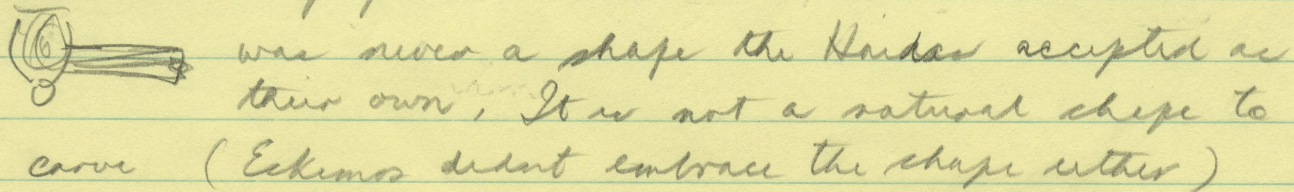 was never a shape the Haidas accepted as
their own. It is not a natural shape to
carve (Eskimos didnt embrace the shape either)